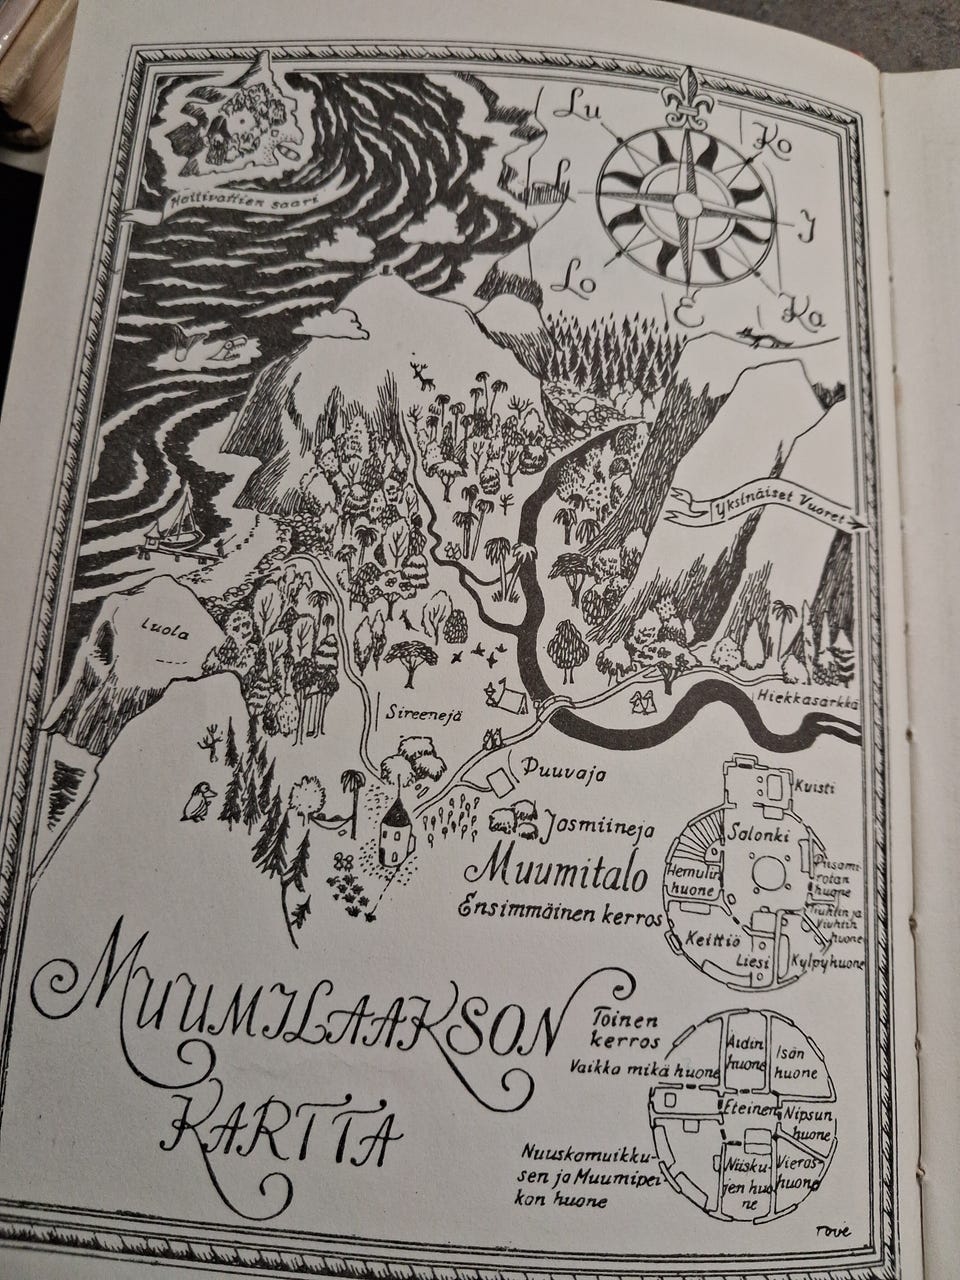 Lu
Ko
I
Lo
E
Ka
Hattivattien saari
Yksinäiset Vuoret
Luola
Hiekkasärkkä
Sireenejä
Puuvaja
Jasmiineja
Muumitalo
Ensimmäinen kerros
Kuisti
Salonki
Hemulin
huone
Piisami-
rotan
huone
Tiuhtin ja
Viuhtin
huone
Keittiö
Liesi
Kylpyhuone
MUUMILAAKSON
KARTTA
Toinen
kerros
Vaikka mikä huone
Äidin
huone
Isän
huone
Eteinen
Nipsun
huone
Nuuskamuikku-
sen ja Muumipei-
kon huone
Niisku-
jen huo
ne
Vieras-
huone
Tove